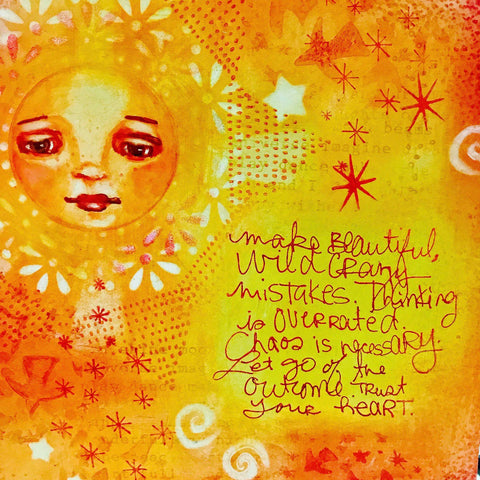 make Beautiful,
Wild Crazy
mistakes. Thinking
is OVERRATED.
Chaos is necessARY.
Let go of the
outcome. Trust
your heART.